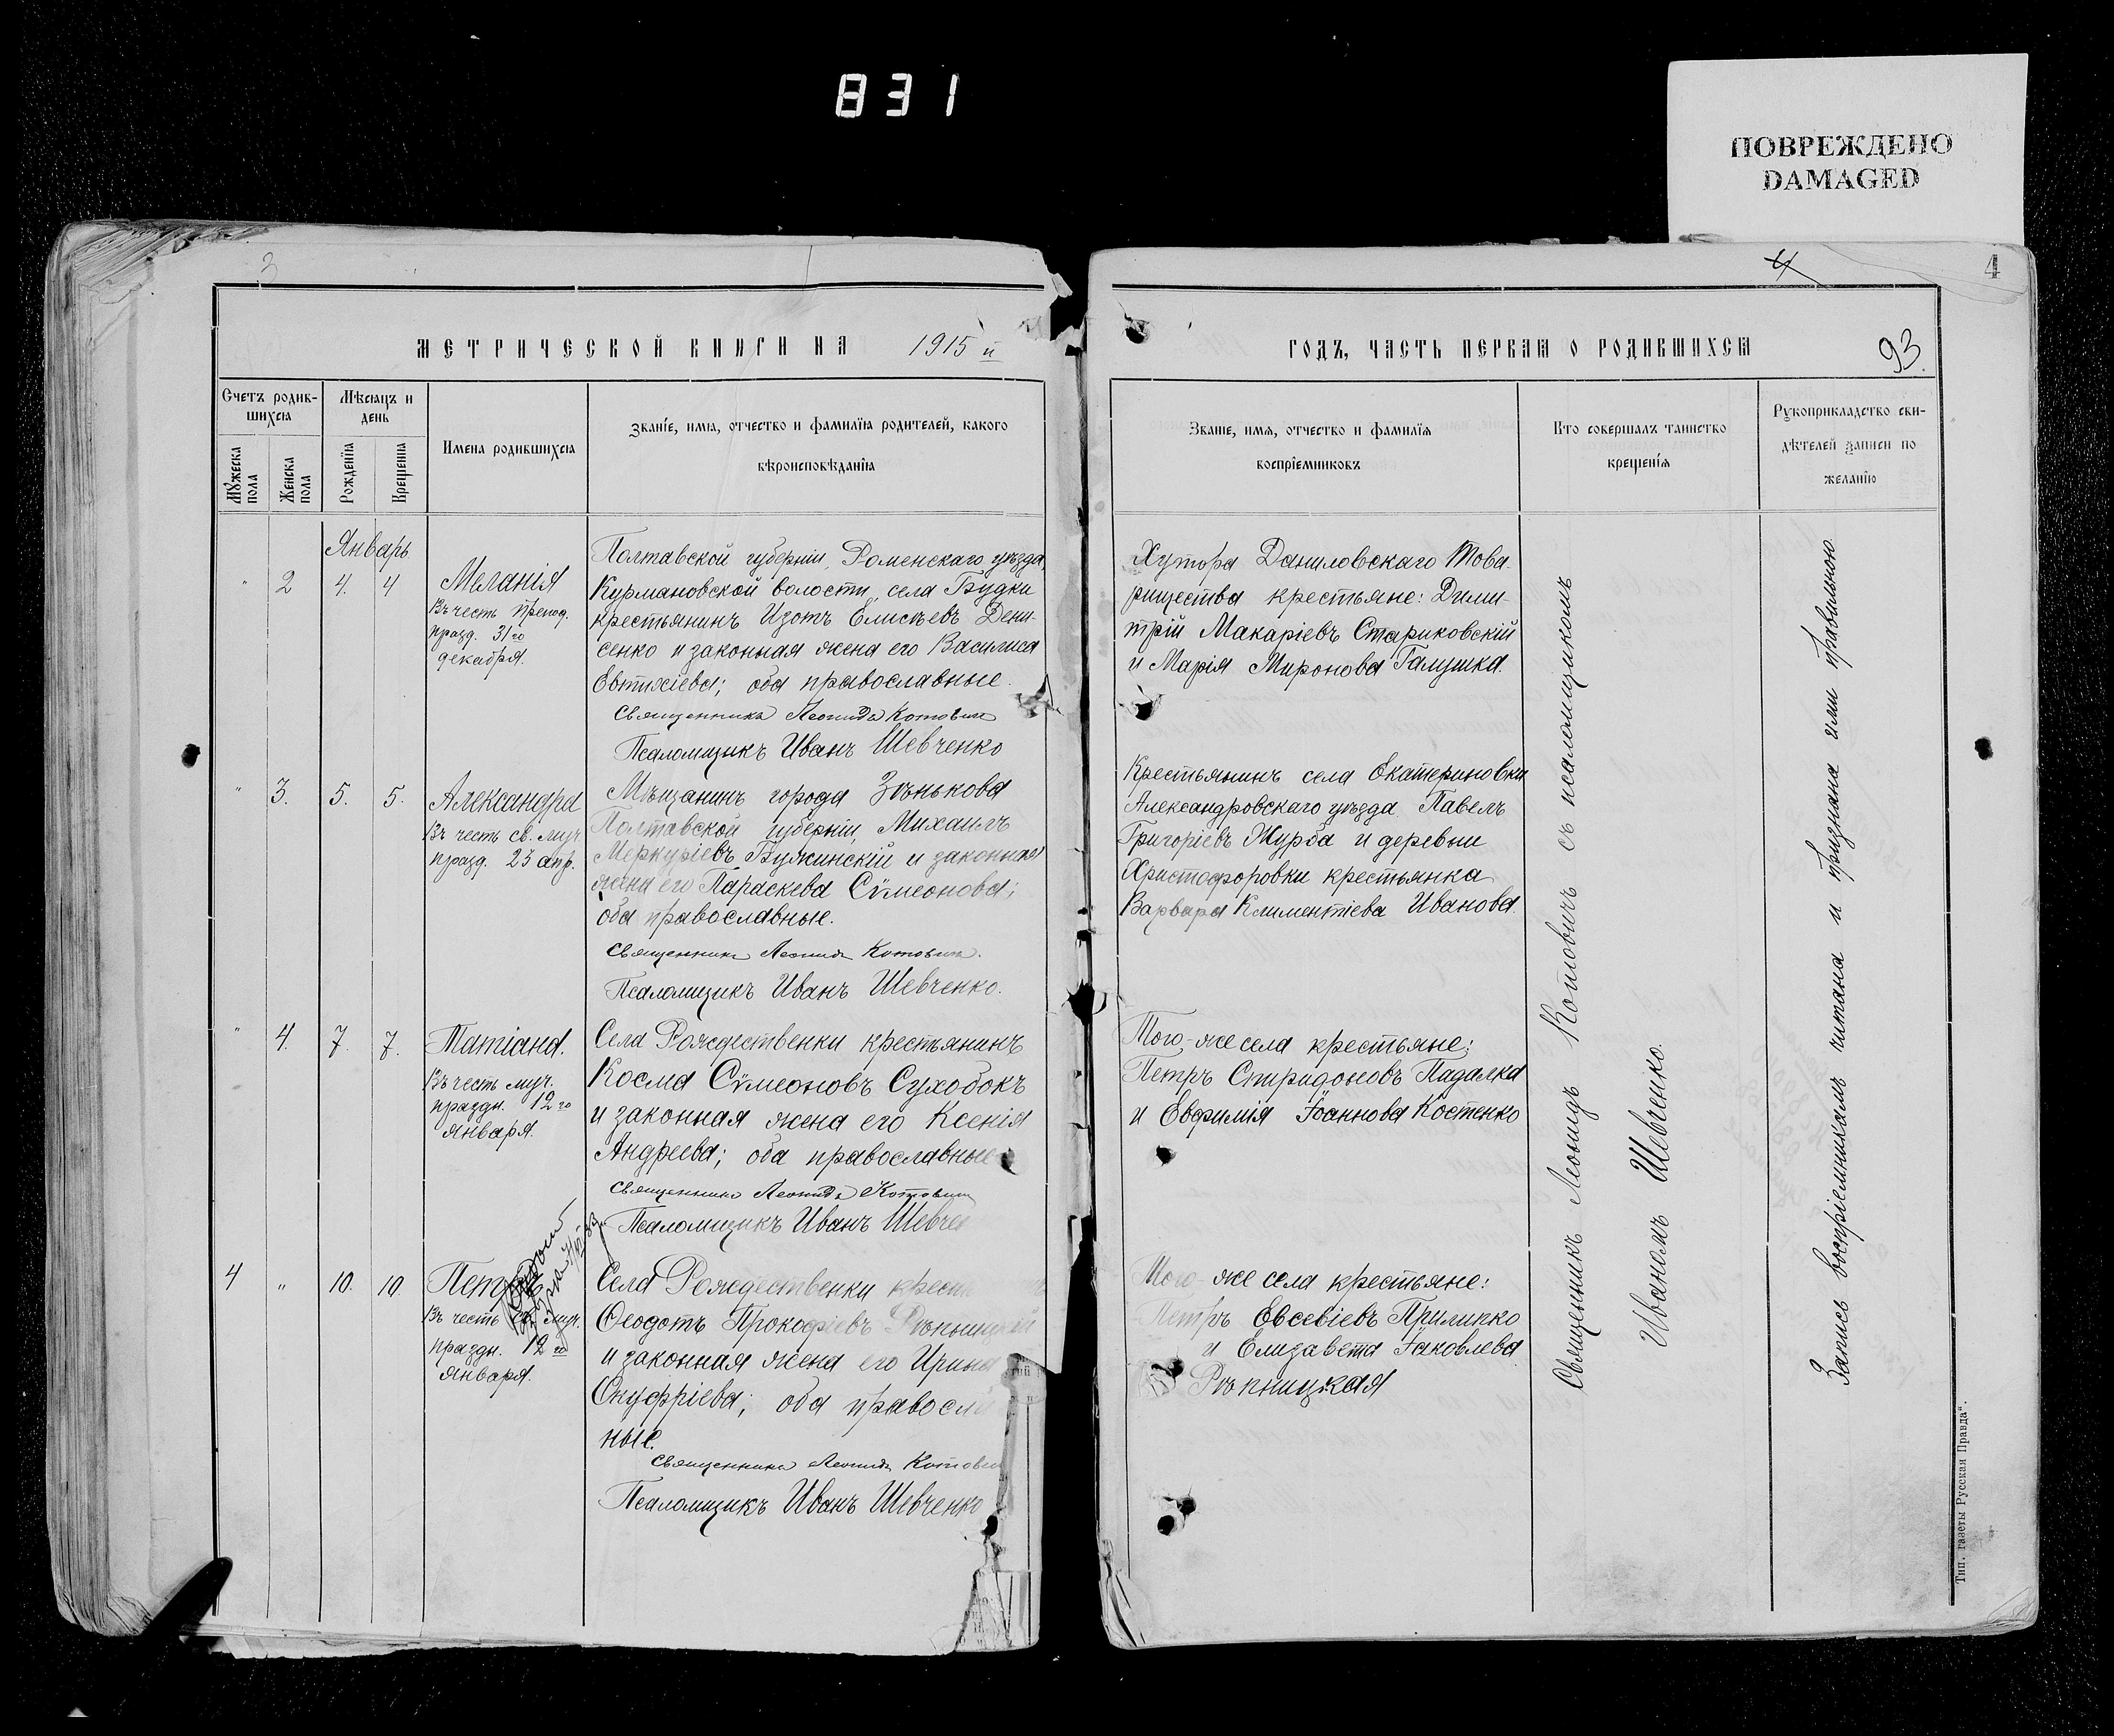 831
ПОВРЕЖДЕНО
DAMAGED
3
4
4
МЕТРИЧЕСКОЙ КНИГИ НА 1915 й
ГОДЪ, ЧАСТЬ ПЕРВАЯ О РОДИВШИХСЯ
93.
Счетъ родив-
шихся
Мѣсяцъ и
день
Мужеска
пола
Женска
пола
Рожденія
Крещенія
Имена родившихся
Званіе, имя, отчество и фамилія родителей, какого
вѣроисповѣданія
Званіе, имя, отчество и фамилія
воспріемниковъ
Кто совершалъ таинство
крещенія
Рукоприкладство сви-
дѣтелей записи по
желанію
Январь
" 2 4. 4
Меланія
Въ честь препод.
празд. 31го
декабря.
Полтавской губерніи, Роменскаго уѣзда,
Курмановской волости, села Будки
крестьянинъ Изотъ Елисѣевъ Дени-
сенко и законная жена его Василиса
Евтихіева; оба православные.
Священникъ Леонидъ Котовичъ
Псаломщикъ Иванъ Шевченко
Хутора Даниловскаго Това-
рищества крестьяне: Дими-
трій Макаріевъ Стариковскій
и Марія Миронова Галушка.
" 3. 5. 5.
Александра
Въ честь св. муч.
празд. 23 апр.
Мѣщанинъ города Зѣнькова
Полтавской губерніи, Михаилъ
Меркуріевъ Бужинскій и законная
жена его Параскева Сѵмеонова;
оба православные.
Священникъ Леонидъ Котовичъ.
Псаломщикъ Иванъ Шевченко.
Крестьянинъ села Екатериновки
Александровскаго уѣзда Павелъ
Григоріевъ Журба и деревни
Христофоровки крестьянка
Варвара Климентіева Иванова.
" 4. 7. 7.
Татіана.
Въ честь муч.
праздн. 12го
января.
Села Рождественки крестьянинъ
Косма Сѵмеоновъ Сухобокъ
и законная жена его Ксенія
Андреева; оба православные
Священникъ Леонидъ Котовичъ
Псаломщикъ Иванъ Шевче
Того-же села крестьяне:
Петръ Спиридоновъ Падалка
и Евфимія Іоаннова Костенко
4 " 10. 10
Петръ
Въ честь св. муч.
праздн. 12го
января.
Села Рождественки крест
Ѳеодотъ Прокофіевъ Рѣпницкій
и законная жена его Ирина
Онуфріева; оба правосла
ные.
Священникъ Леонидъ Котович
Псаломщикъ Иванъ Шевченко
Того-же села крестьяне:
Петръ Евсевіевъ Прилипко
и Елизавета Іаковлева
Рѣпницкая
Священникъ Леонидъ Котовичъ съ псаломщикомъ
Иваномъ Шевченко.
Запись воспріемникамъ читана и признана ими правильною
Тип. газеты „Русская Правда“.